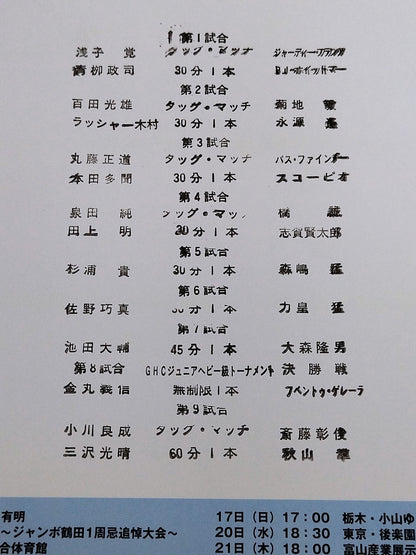 第1試合
浅子 覚 タッグ・マッチ
青柳政司 30分1本
第2試合
百田光雄 タッグ・マッチ 菊地 毅
ラッシャー木村 30分1本 永源 遙
第3試合
丸藤正道 タッグ・マッチ バス・ファインガー
本田多聞 30分1本 スコーピオ
第4試合
泉田 純 タッグ・マッチ 橋 誠
田上 明 30分1本 志賀賢太郎
第5試合
杉浦 貴 30分1本 森嶋 猛
第6試合
佐野巧真 30分1本 力皇 猛
第7試合
池田大輔 45分1本 大森隆男
第8試合 GHCジュニアヘビー級トーナメント 決勝戦
金丸義信 無制限1本 フベントゥ・ゲレーラ
第9試合
小川良成 タッグ・マッチ 斎藤彰俊
三沢光晴 60分1本 秋山 準
有明 17日(日)17:00 栃木・小山ゆ
~ジャンボ鶴田1周忌追悼大会~ 20日(水)18:30 東京・後楽園
合体育館 21日(木)18:00 富山産業展示